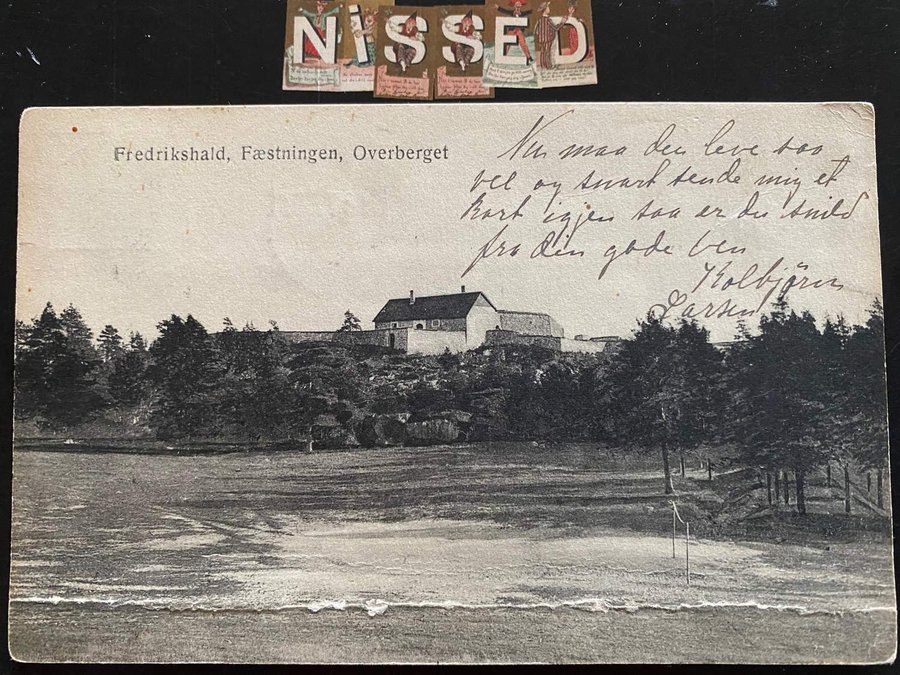 NISSED
Fredrikshald, Fæstningen, Overberget
Nu maa den leve saa
vel og snart sende mig et
kort igjen saa er du snild
fra din gode ven
Kolbjörn
Larsen